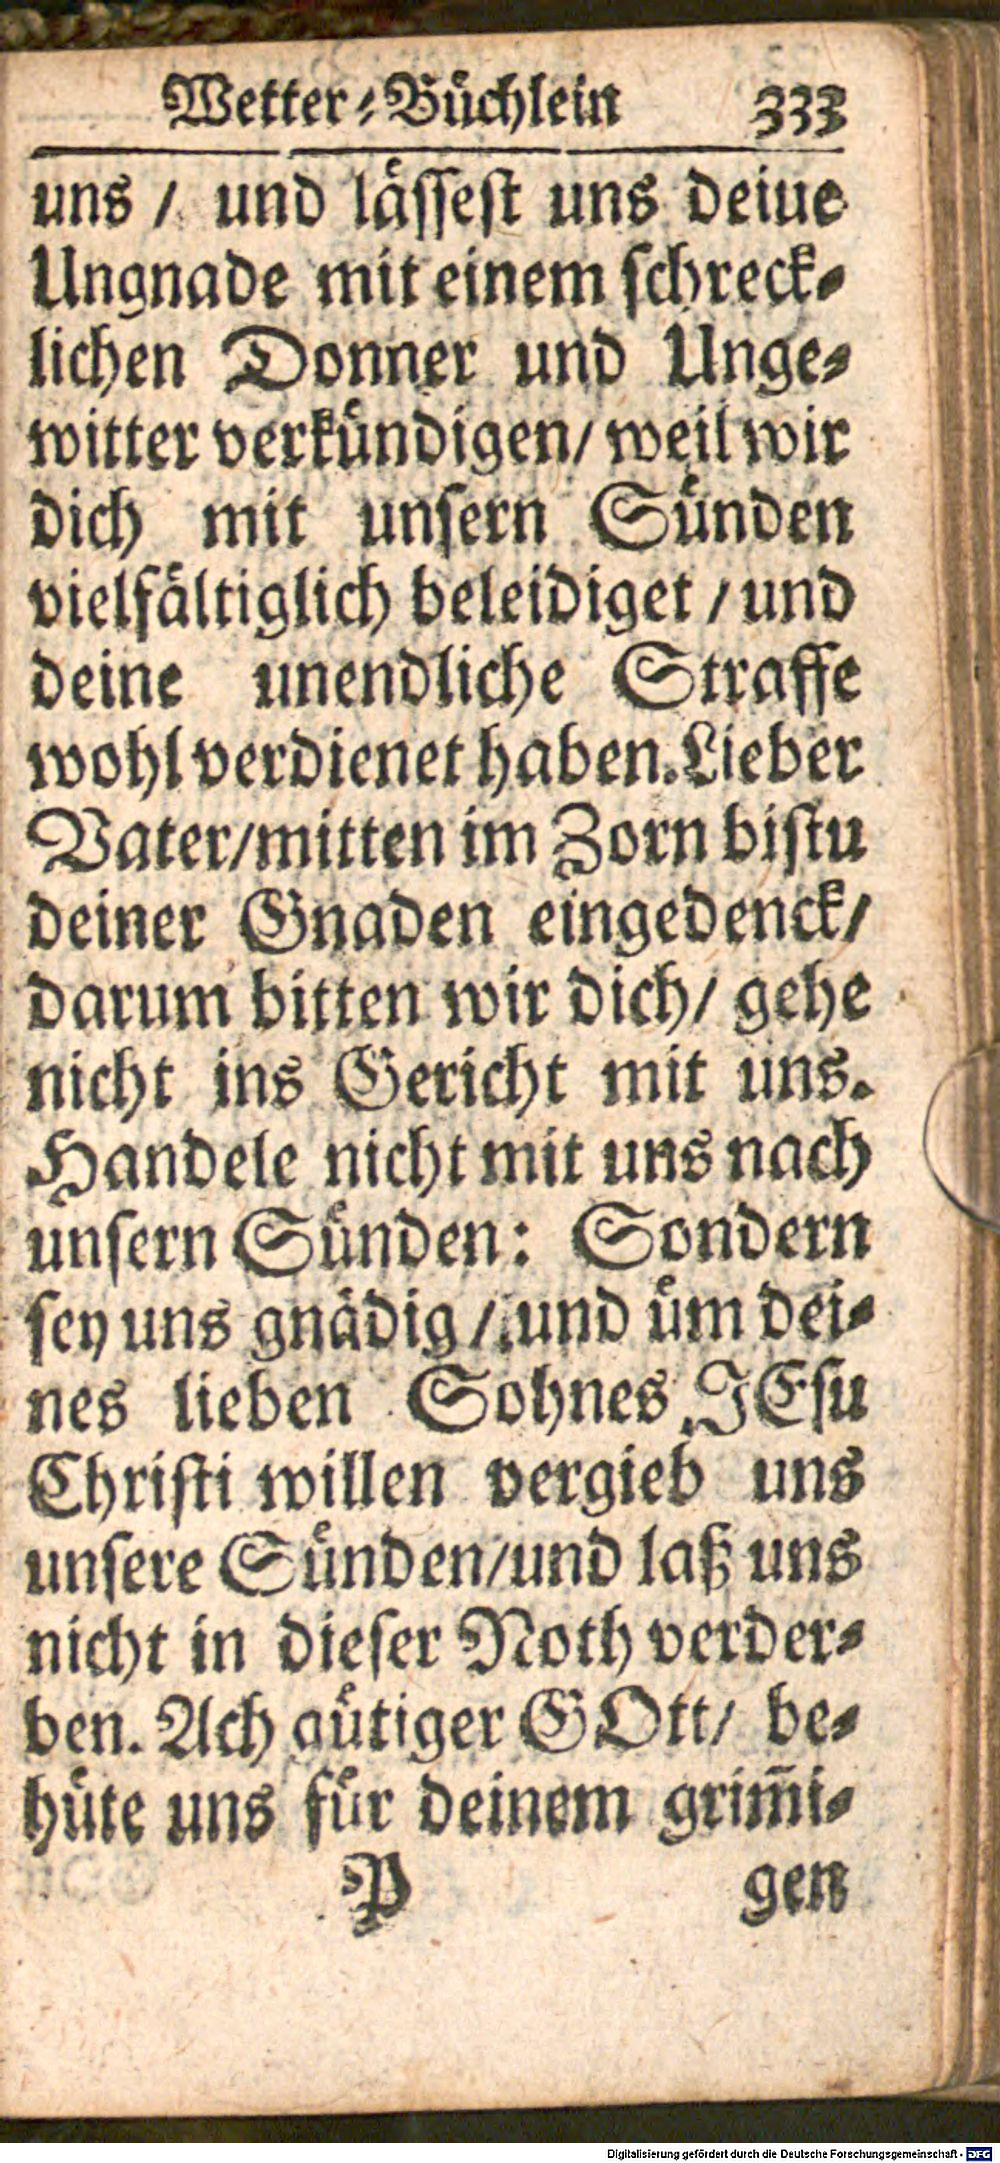 Wetter-Büchlein 333
uns / und lässest uns deiue
Ungnade mit einem schreck-
lichen Donner und Unge-
witter verkündigen/ weil wir
dich mit unsern Sünden
vielfältiglich beleidiget / und
deine unendliche Straffe
wohl verdienet haben. Lieber
Vater/mitten im Zorn bistu
deiner Gnaden eingedenck/
darum bitten wir dich/ gehe
nicht ins Gericht mit uns.
Handele nicht mit uns nach
unsern Sünden: Sondern
sey uns gnädig / und üm dei-
nes lieben Sohnes JEsu
Christi willen vergieb uns
unsere Sünden/und laß uns
nicht in dieser Noth verder-
ben. Ach gütiger GOtt/ be-
hüte uns für deinem grim̃i-
P gen
Digitalisierung gefördert durch die Deutsche Forschungsgemeinschaft - DFG